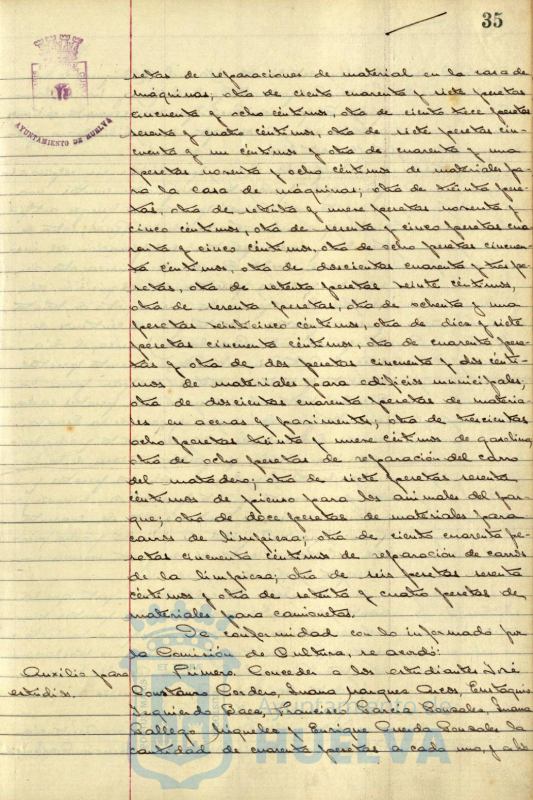 35
AYUNTAMIENTO DE HUELVA
setas de reparaciones de material en la casa de
máquinas; otra de ciento cuarenta y siete pesetas
cincuenta y ocho céntimos, otra de ciento trece pesetas
sesenta y cuatro céntimos, otra de siete pesetas cin-
cuenta y un céntimos y otra de cuarenta y una
pesetas noventa y ocho céntimos de materiales pa-
ra la casa de máquinas; otra de treinta pese-
tas, otra de setenta y nueve pesetas noventa y
cinco céntimos, otra de sesenta y cinco pesetas cua-
renta y cinco céntimos, otra de ocho pesetas cincuen-
ta céntimos, otra de doscientas cuarenta y tres pe-
setas, otra de setenta pesetas veinte céntimos,
otra de sesenta pesetas, otra de ochenta y una
pesetas veinticinco céntimos, otra de diez y siete
pesetas cincuenta céntimos, otra de cuarenta pese-
tas y otra de dos pesetas cincuenta y dos cénti-
mos de materiales para edificios municipales;
otra de doscientas cuarenta pesetas de materia-
les en aceras y pavimentos; otra de trescientas
ocho pesetas treinta y nueve céntimos de gasolina,
otra de ocho pesetas de reparación del carro
del matadero; otra de siete pesetas sesenta
céntimos de pienso para los animales del par-
que; otra de doce pesetas de materiales para
carros de limpieza; otra de ciento cuarenta pe-
setas cincuenta céntimos de reparación de carros
de la limpieza; otra de seis pesetas sesenta
céntimos y otra de setenta y cuatro pesetas de
materiales para camionetas.
De conformidad con lo informado por
la Comisión de Cultura, se acordó:
Auxilio para
estudios.
Primero. Conceder a los estudiantes José
Constauro Cordero, Juana Marquez Arcos, Eustaquio
Izquierdo Baco, Francisco García Gonzalez, Juana
Gallego Miguelez y Enrique Cuerda Gonzalez la
cantidad de cuarenta pesetas a cada uno, y a los
Ayuntamiento de
HUELVA